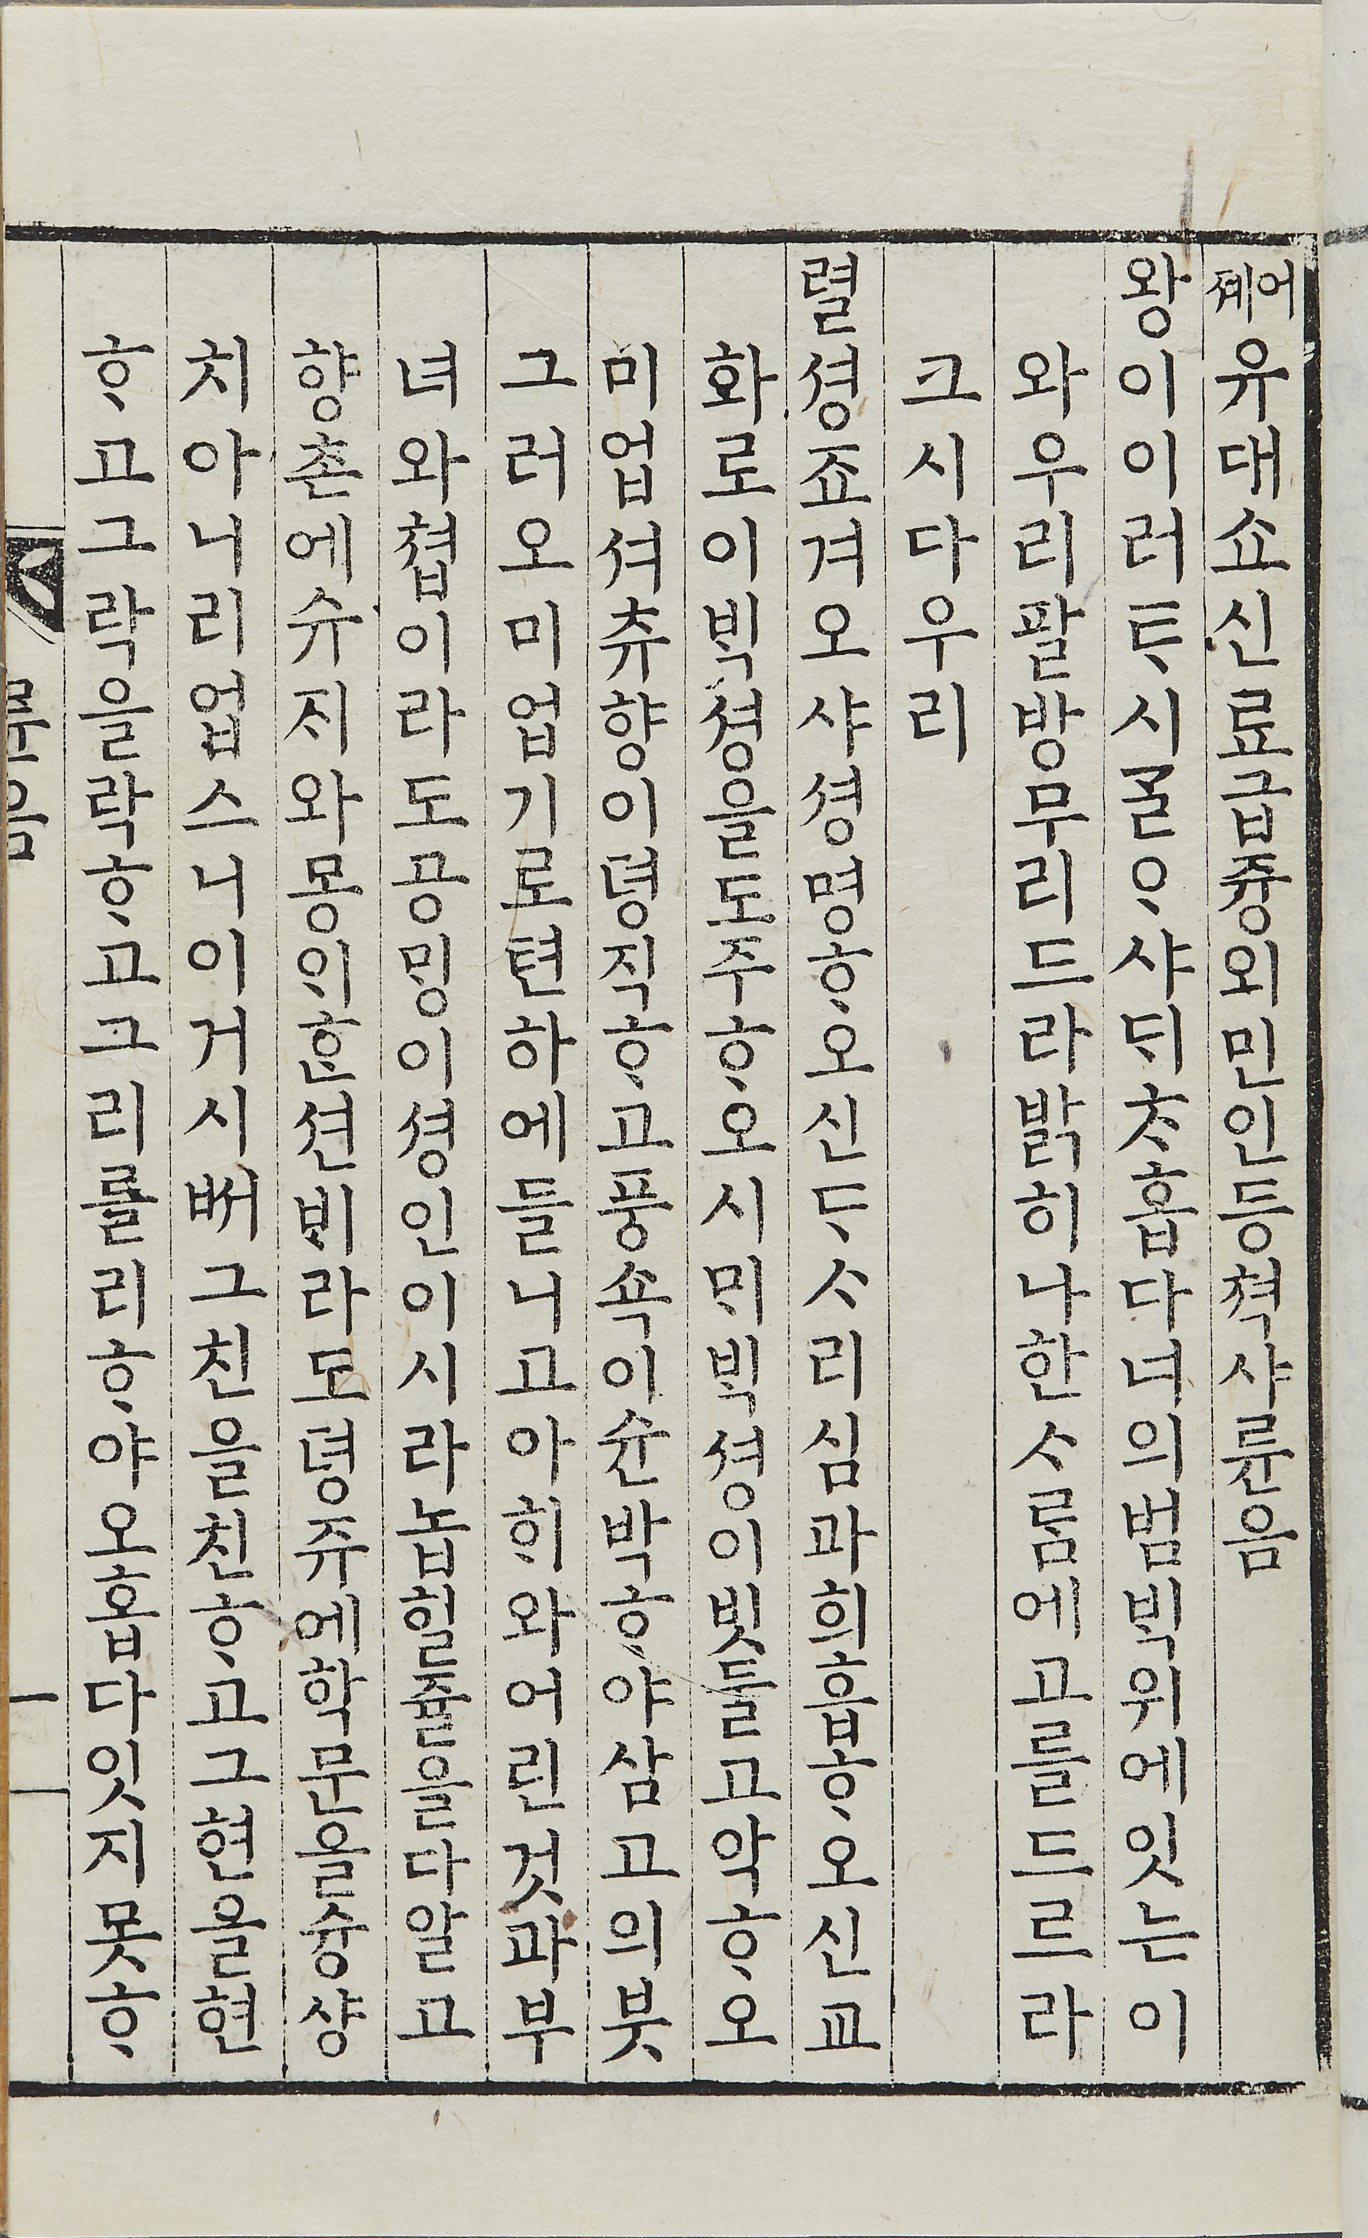 어졔유대쇼신료급즁외민인등쳑샤륜음
왕이이러ᄐᆞ시ᄀᆞᆯᄋᆞ샤ᄃᆡᄎᆞ홉다녀의범ᄇᆡᆨ위에잇는이
와우리팔방무리드라밝히나한ᄉᆞᄅᆞᆷ에고를드르라
크시다우리
렬셩죠겨오샤셩명ᄒᆞ오신ᄃᆞᄉᆞ리심과희흡ᄒᆞ오신교
화로이ᄇᆡᆨ셩을도주ᄒᆞ오시ᄆᆡᄇᆡᆨ셩이ᄇᆡᆺ들고악ᄒᆞ오
미업셔츄향이뎡직ᄒᆞ고풍쇽이슌박ᄒᆞ야삼고의붓
그러오미업기로텬하에들니고아ᄒᆡ와어린것과부
녀와쳡이라도공ᄆᆡᆼ이셩인이시라놉힐쥴을다알고
향촌에슈ᄌᆡ와몽ᄋᆡᄒᆞᆫ션ᄇᆡ라도뎡쥬에학문을슝샹
치아니리업스니이거시ᄡᅥ그친을친ᄒᆞ고그현을현
ᄒᆞ고그락을락ᄒᆞ고그리를리ᄒᆞ야오홉다잇지못ᄒᆞ